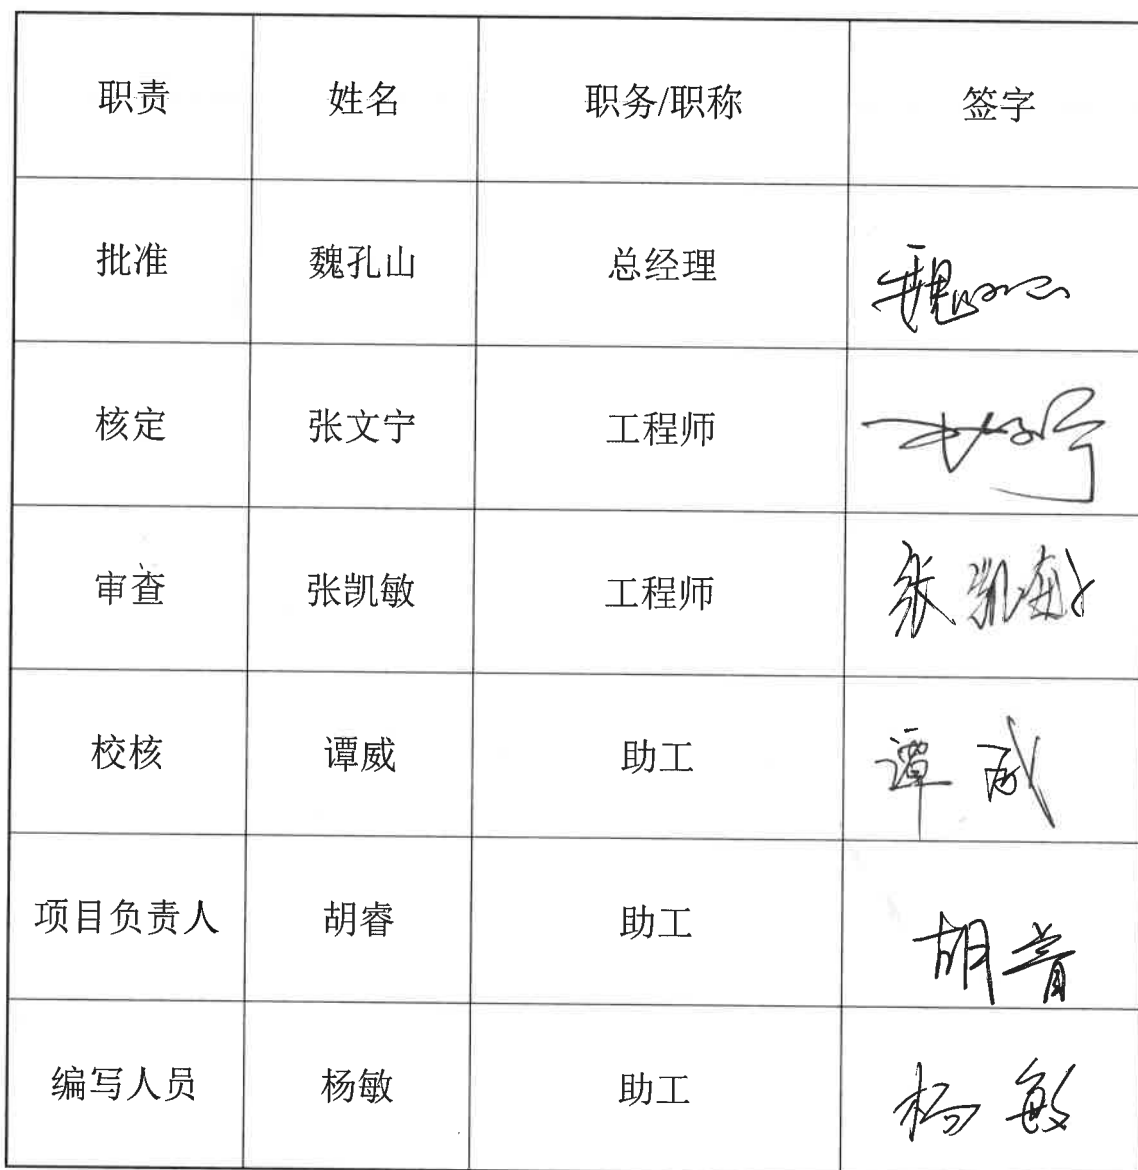 职责 姓名 职务/职称 签字
批准 魏孔山 总经理 魏孔山
核定 张文宁 工程师 张文宁
审查 张凯敏 工程师 张凯敏
校核 谭威 助工 谭威
项目负责人 胡睿 助工 胡睿
编写人员 杨敏 助工 杨敏